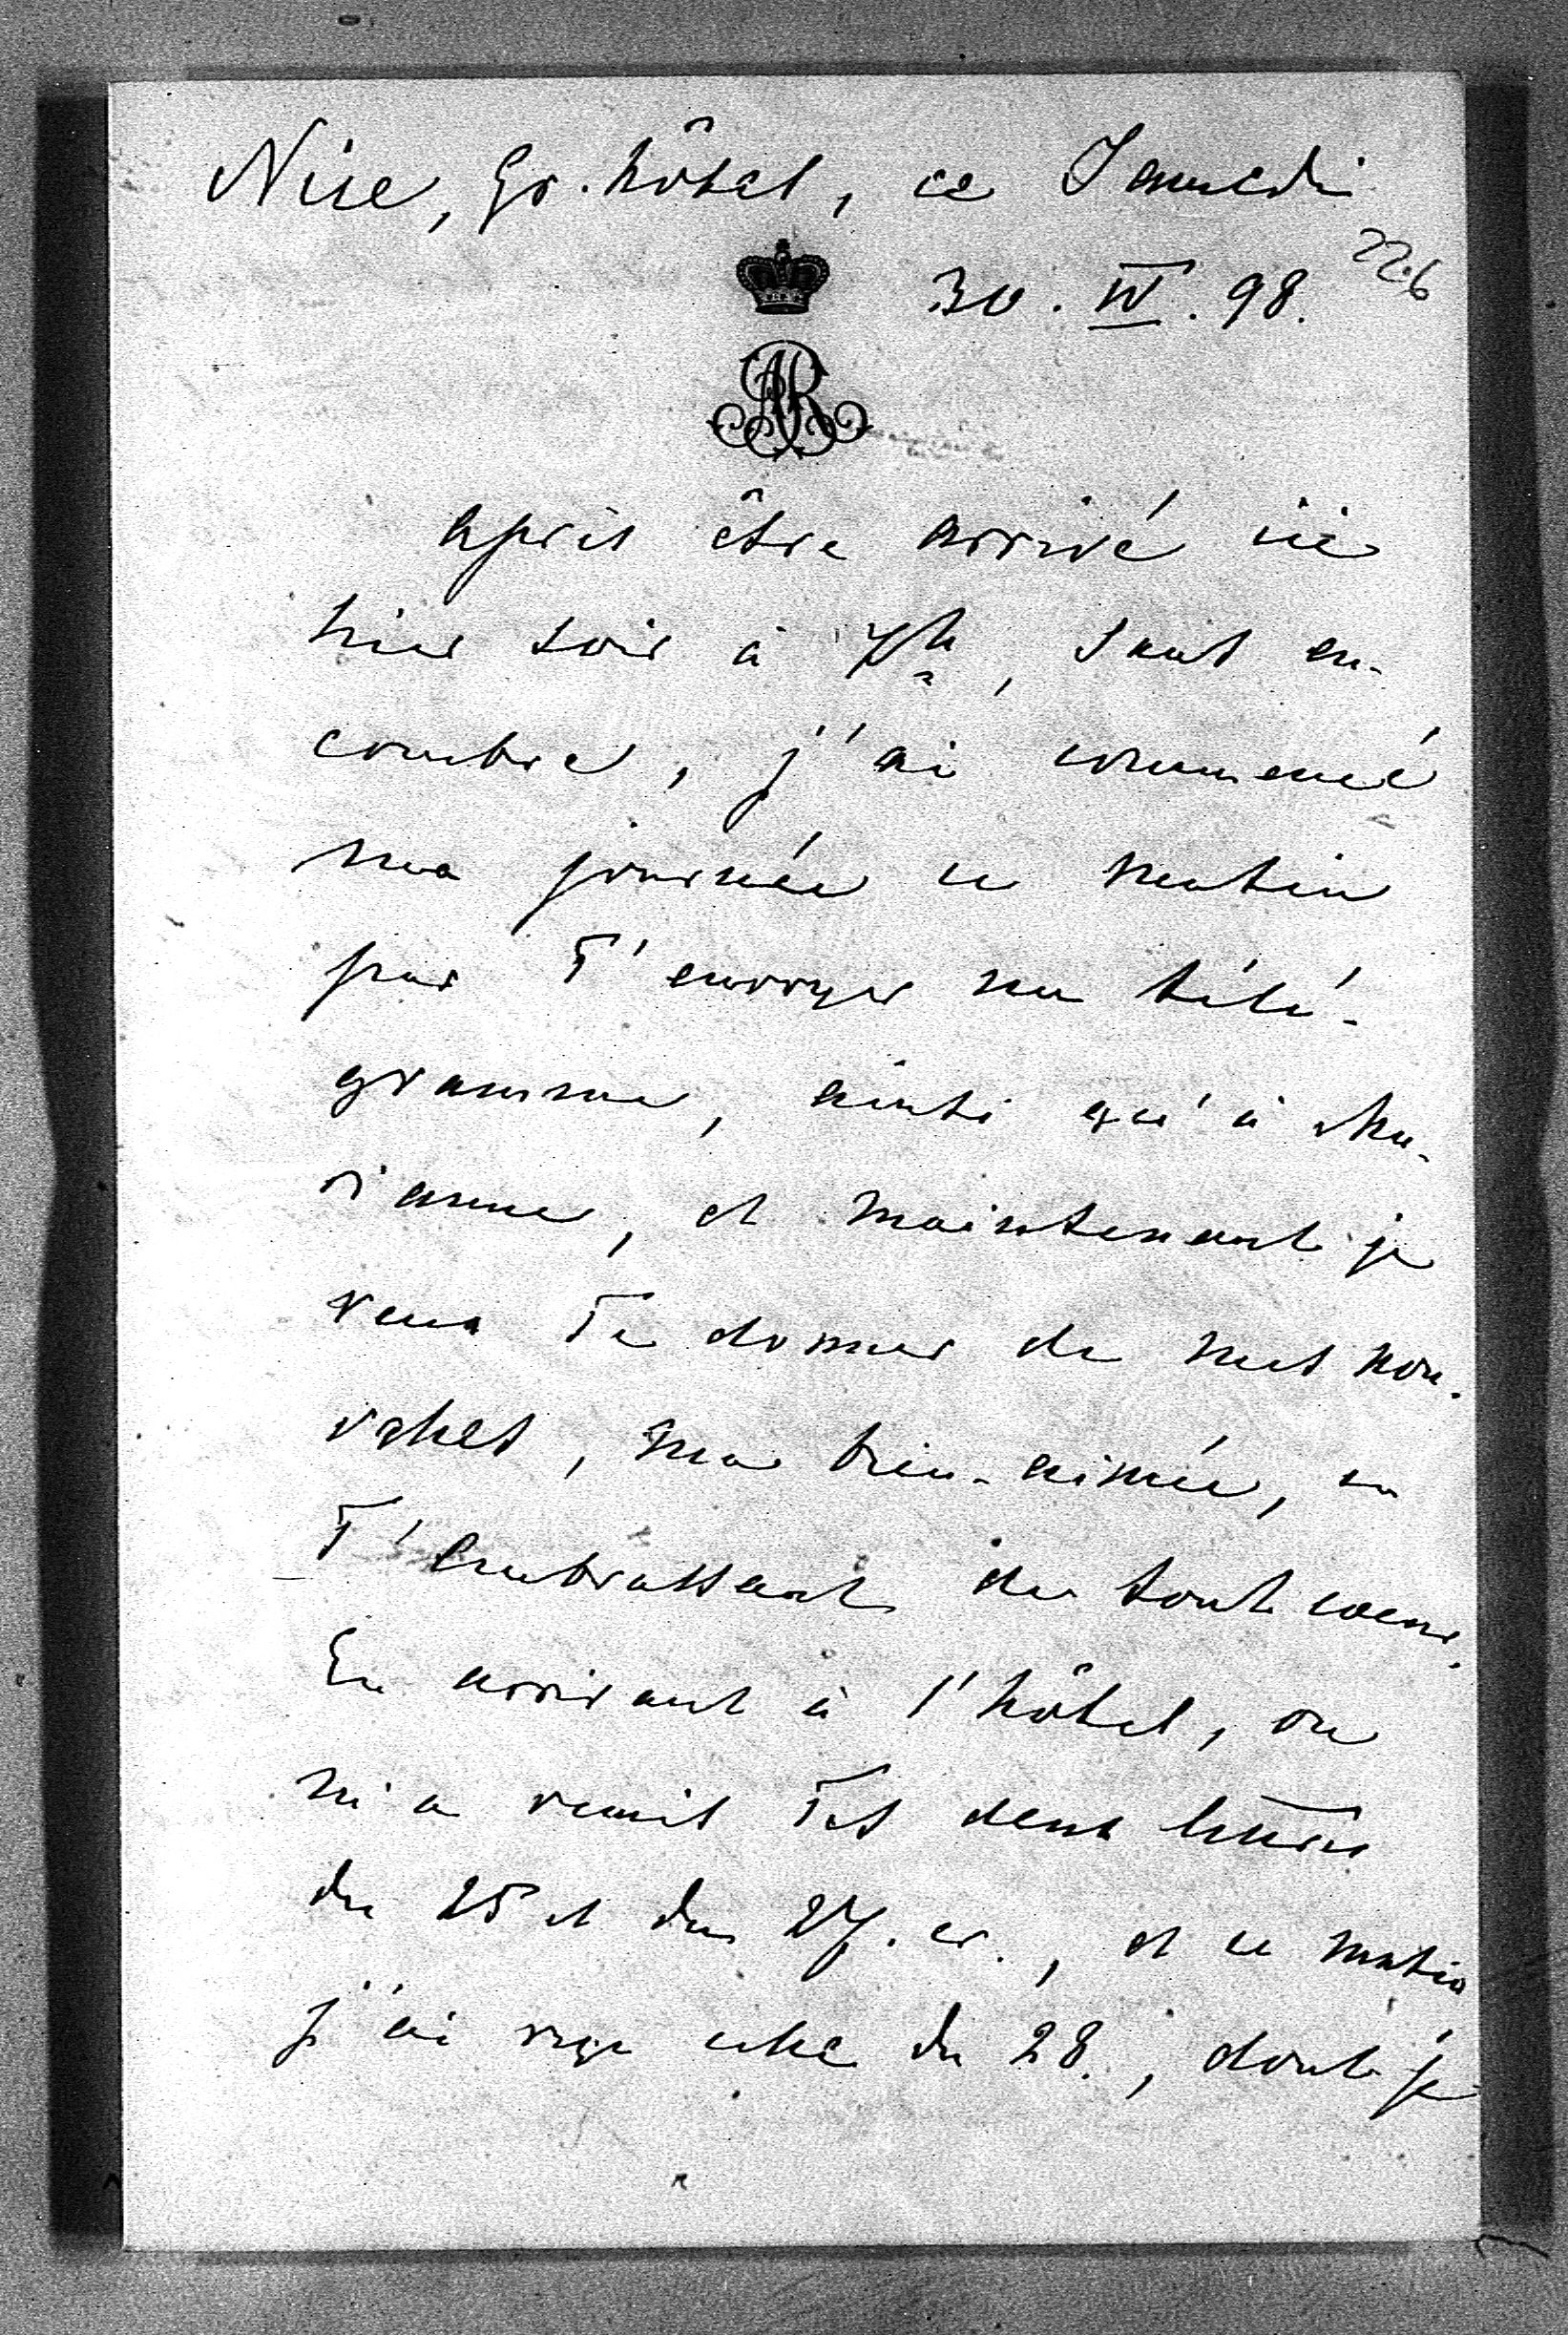 Nice, Gr. hôtel, ce Samedi
30. IV. 98.
226
AR
après être arrivé ici
hier soir à 7h, sans en-
combre, j'ai commencé
ma journée ce matin
par T'envoyer un télé-
gramme, ainsi qu'à Ma-
rianne, et maintenant je
veux Te donner de mes nou-
velles, ma bien-aimée, en
T'embrassant de tout coeur.
En arrivant à l'hôtel, on
m'a remis Tes deux lettres
du 25 et du 27. cr., et ce matin
j'ai reçu celle du 28., dont je